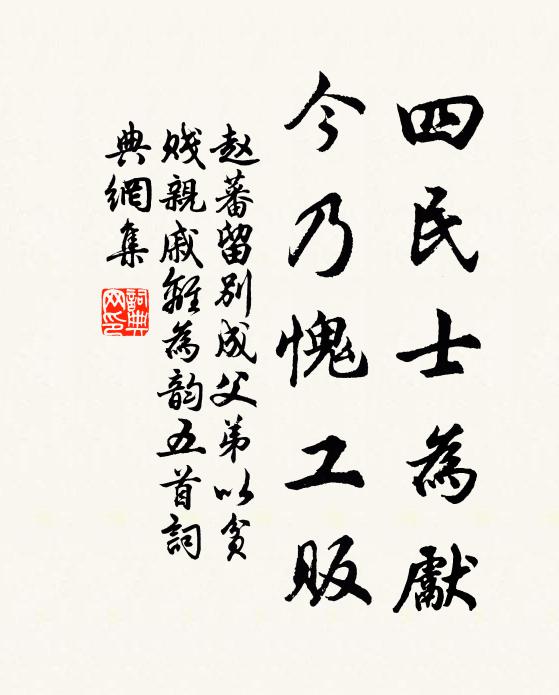 四民士為獻
今乃愧工販
赵蕃留别成父弟以贫
贱親戚離為韵五首詞
典網集
詞典
网印